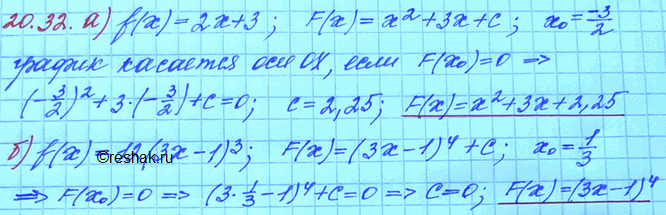 20.32. а) f(x) = 2x+3 ; F(x) = x² + 3x + c ; x₀ = -3/2
график касается оси OX, если F(x₀) = 0 ⇒
(-3/2)² + 3·(-3/2) + c = 0 ; c = 2,25 ; F(x) = x² + 3x + 2,25
б) f(x) = 12(3x-1)³ ; F(x) = (3x-1)⁴ + C ; x₀ = 1/3
©reshak.ru
⇒ F(x₀) = 0 ⇒ (3·1/3 - 1)⁴ + C = 0 ⇒ C = 0 ; F(x) = (3x-1)⁴